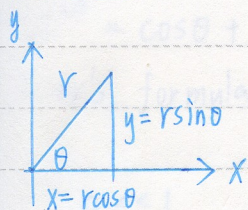 y
r
y=rsinθ
θ
x
x=rcosθ